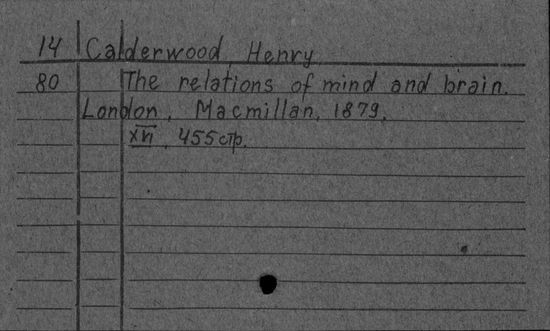 14 Calderwood, Henry
80 The relations of mind and brain.
London, Macmillan, 1879.
XVI, 455 стр.